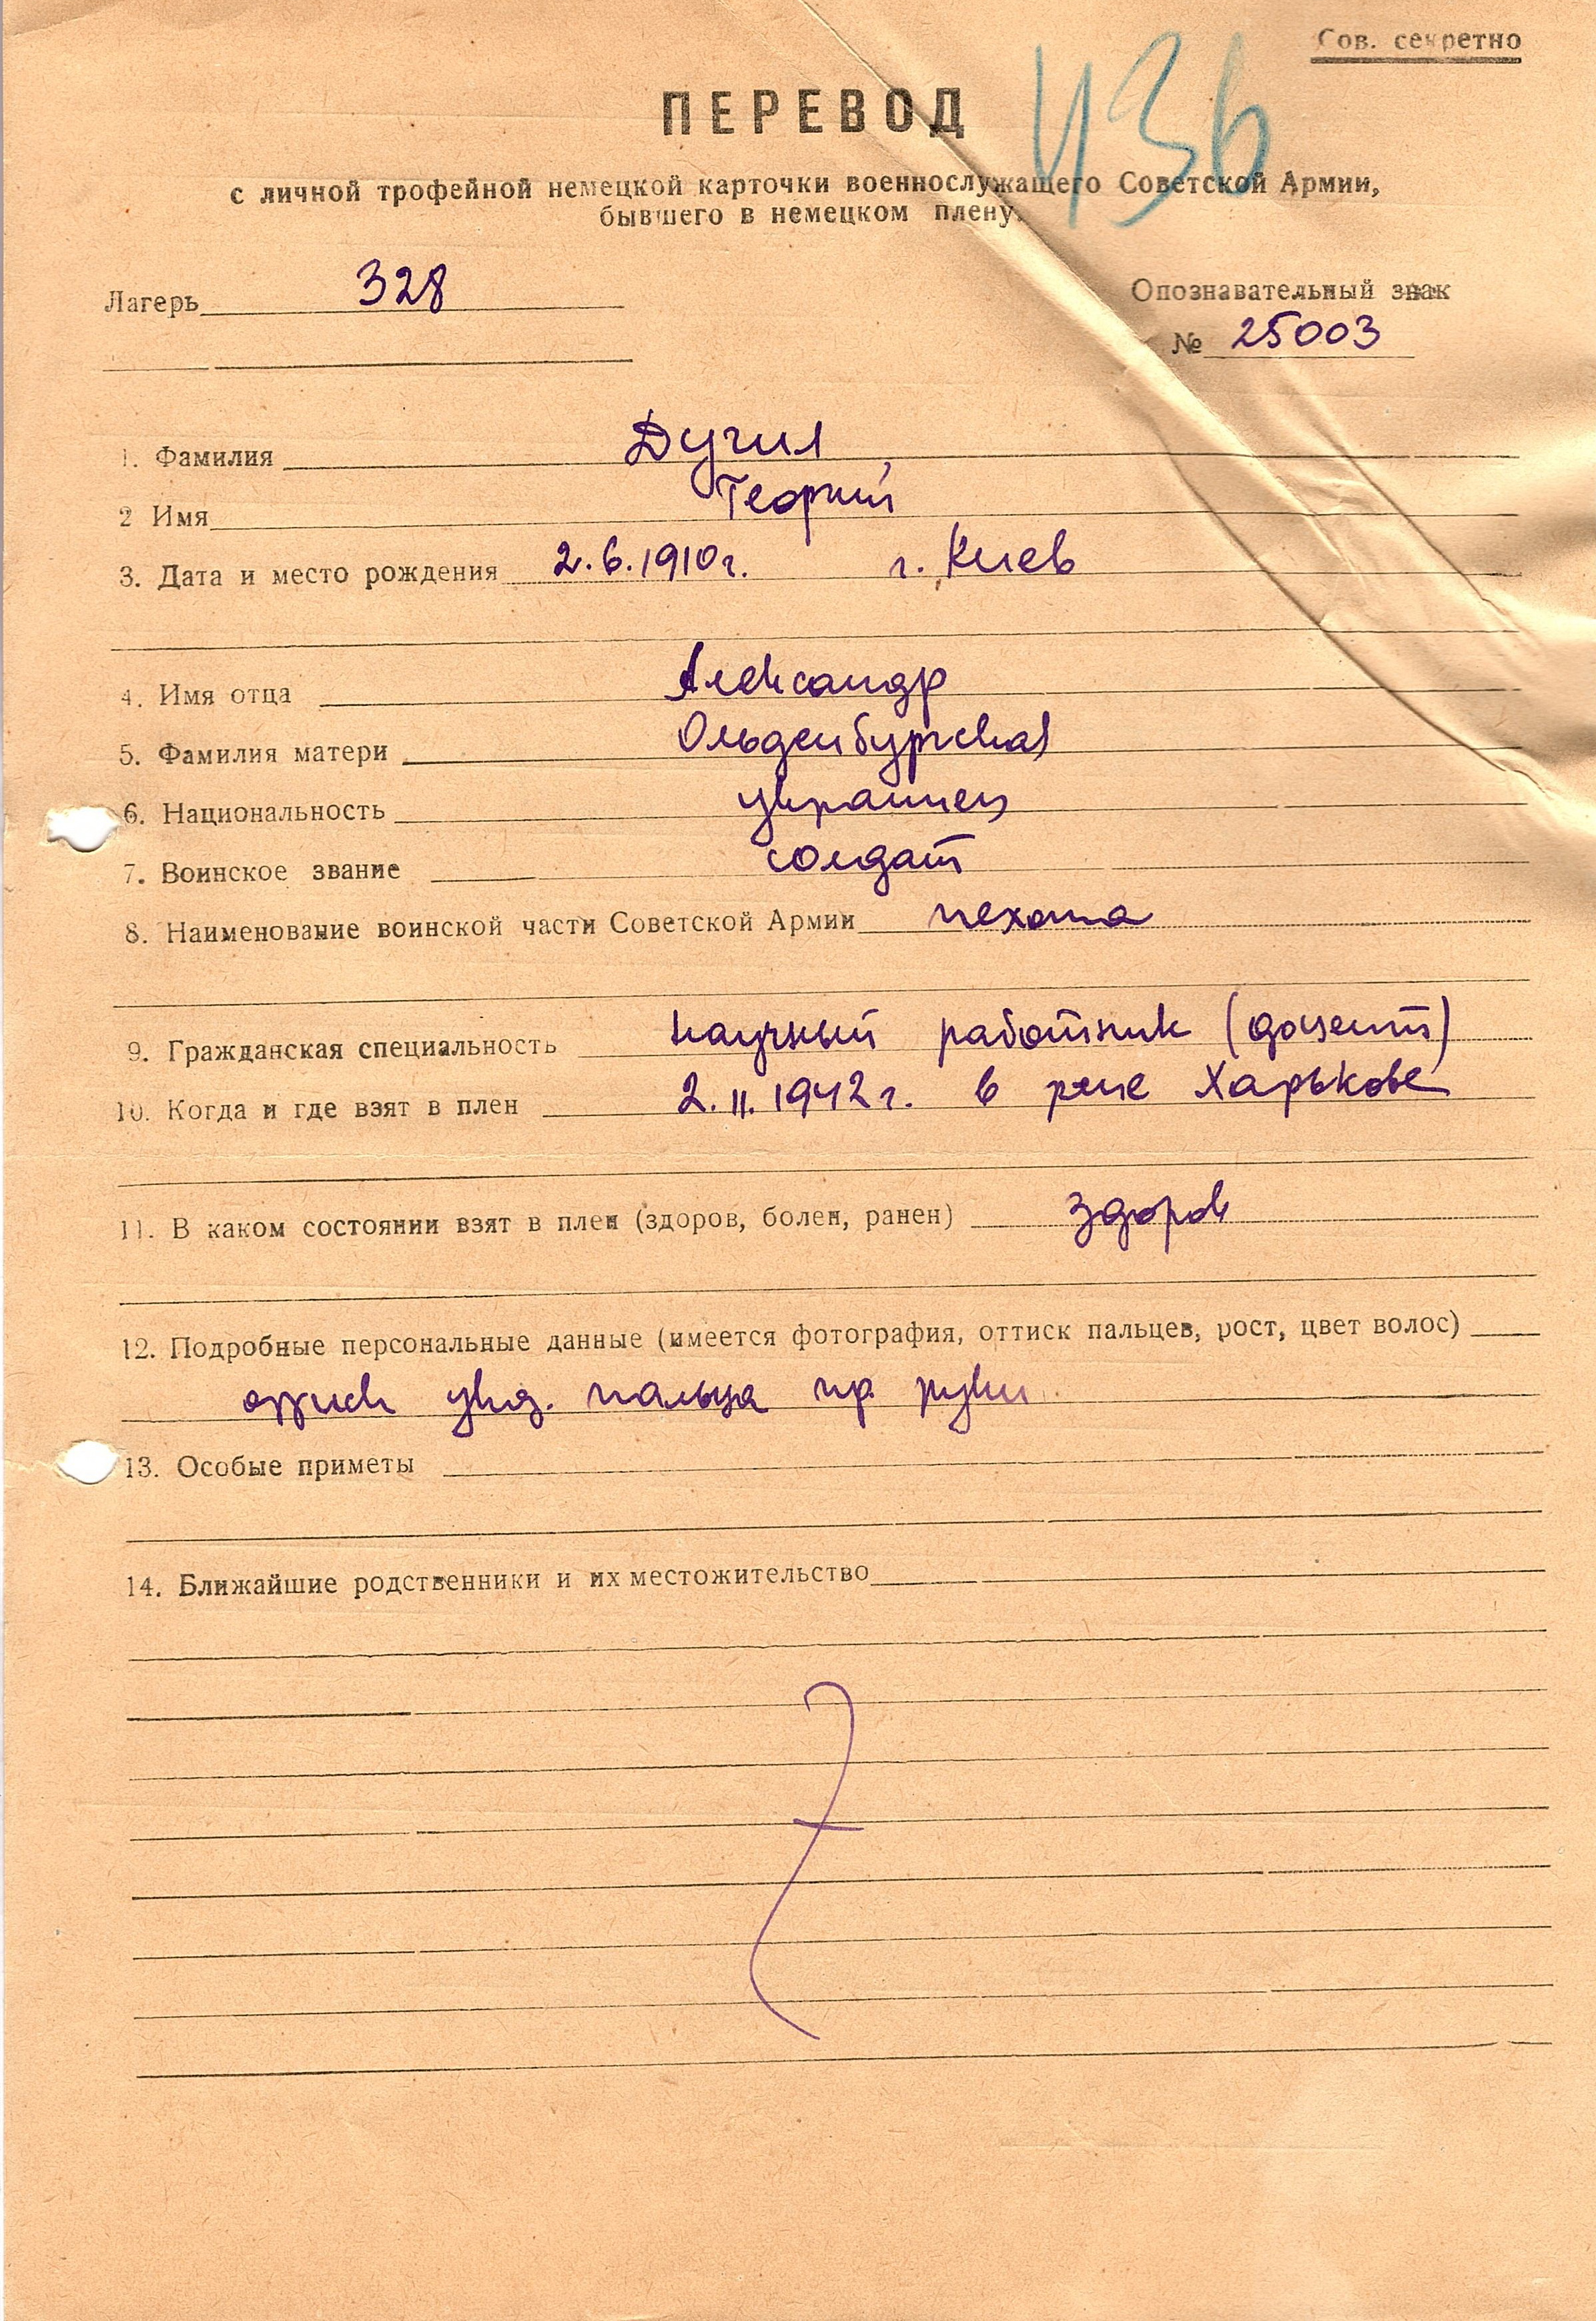 Сов. секретно
436
ПЕРЕВОД
с личной трофейной немецкой карточки военнослужащего Советской Армии,
бывшего в немецком плену.
Лагерь 328
Опознавательный знак
№ 25003
1. Фамилия Дучил
2 Имя Георгий
3. Дата и место рождения 2.6.1910г. г. Киев
4. Имя отца Александр
5. Фамилия матери Ольденбургская
6. Национальность украинец
7. Воинское звание солдат
8. Наименование воинской части Советской Армии пехота
9. Гражданская специальность научный работник (доцент)
10. Когда и где взят в плен 2.II.1942г. в р-не Харькове
11. В каком состоянии взят в плен (здоров, болен, ранен) здоров
12. Подробные персональные данные (имеется фотография, оттиск пальцев, рост, цвет волос)
оттиск указ. пальца пр. руки
13. Особые приметы
14. Ближайшие родственники и их местожительство